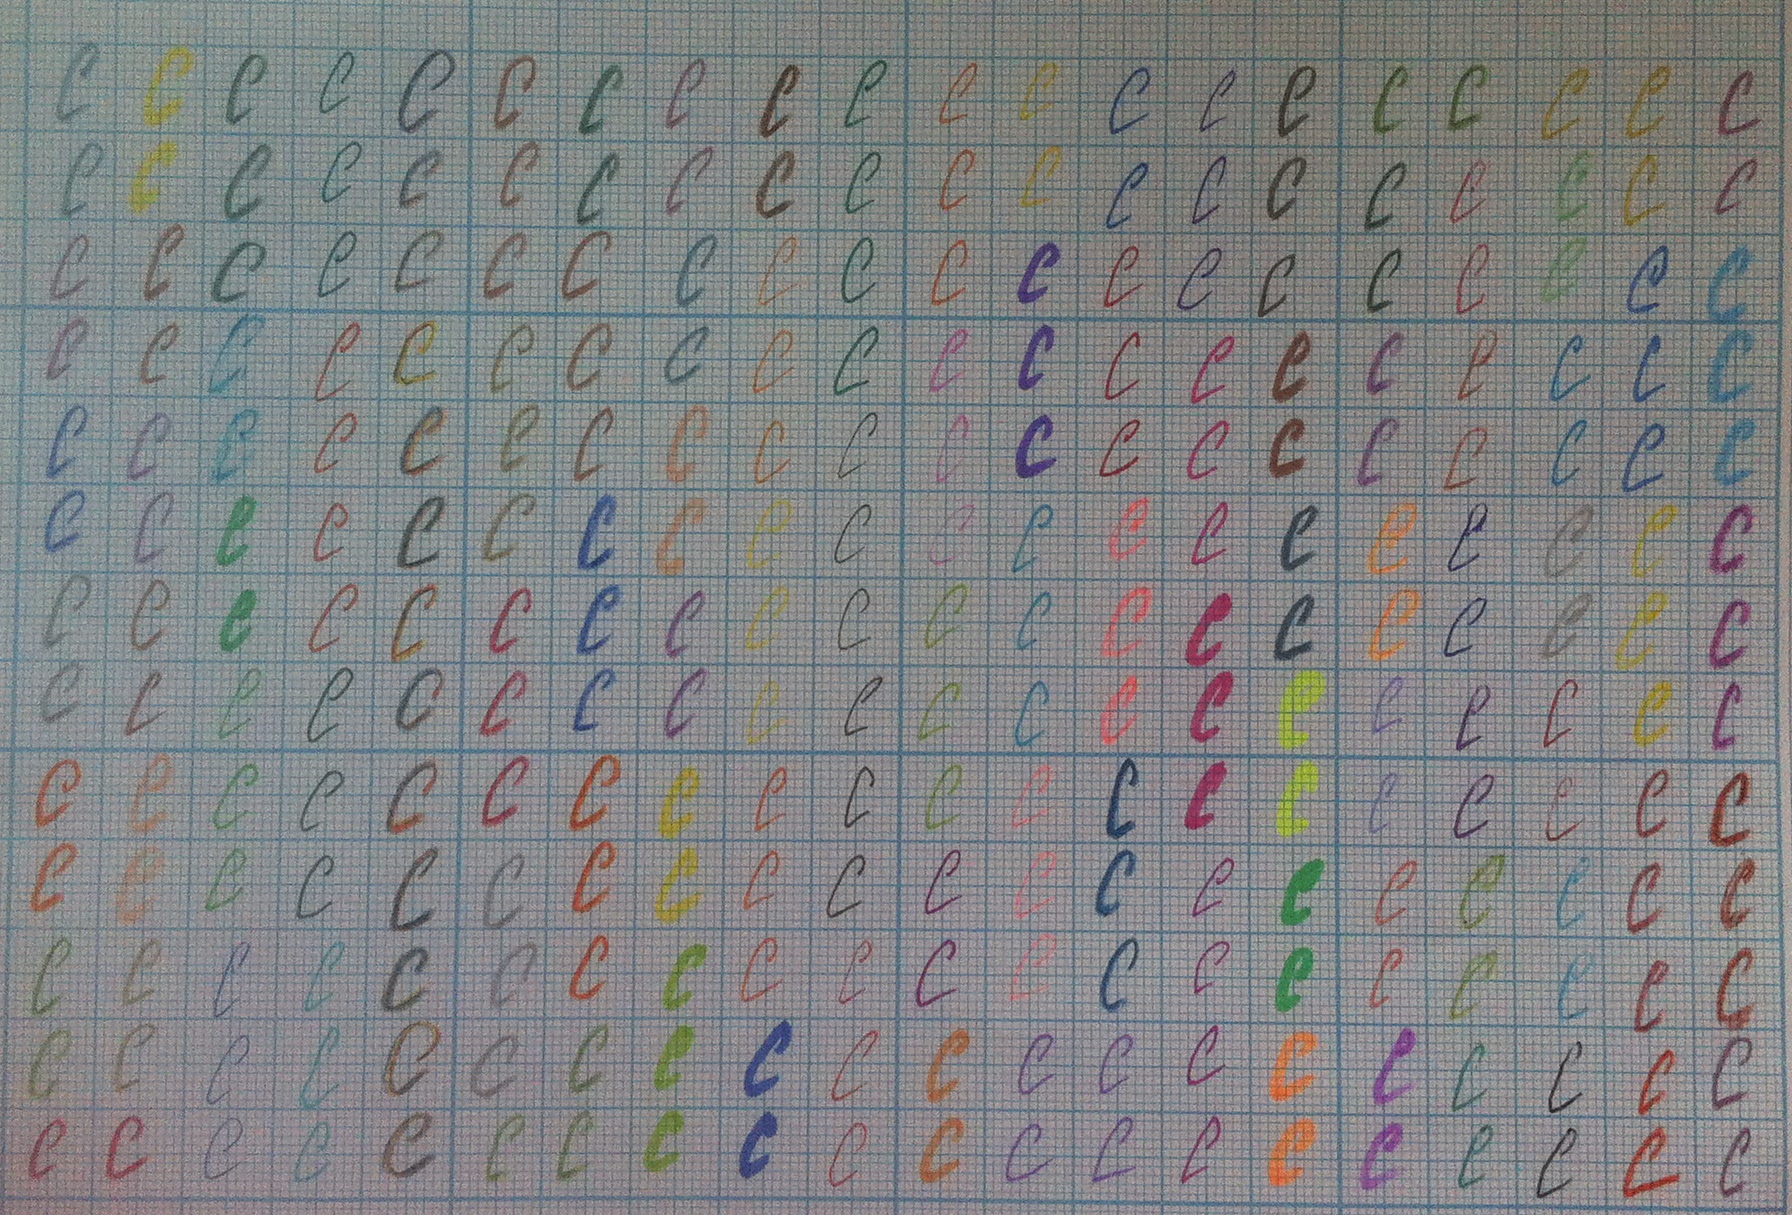 e e e e e e e e e e e e e e e e e e e e
e e e e e e e e e e e e e e e e e e e e
e e e e e e e e e e e e e e e e e e e e
e e e e e e e e e e e e e e e e e e e e
e e e e e e e e e e e e e e e e e e e e
e e e e e e e e e e e e e e e e e e e e
e e e e e e e e e e e e e e e e e e e e
e e e e e e e e e e e e e e e e e e e e
e e e e e e e e e e e e e e e e e e e e
e e e e e e e e e e e e e e e e e e e e
e e e e e e e e e e e e e e e e e e e e
e e e e e e e e e e e e e e e e e e e e
e e e e e e e e e e e e e e e e e e e e